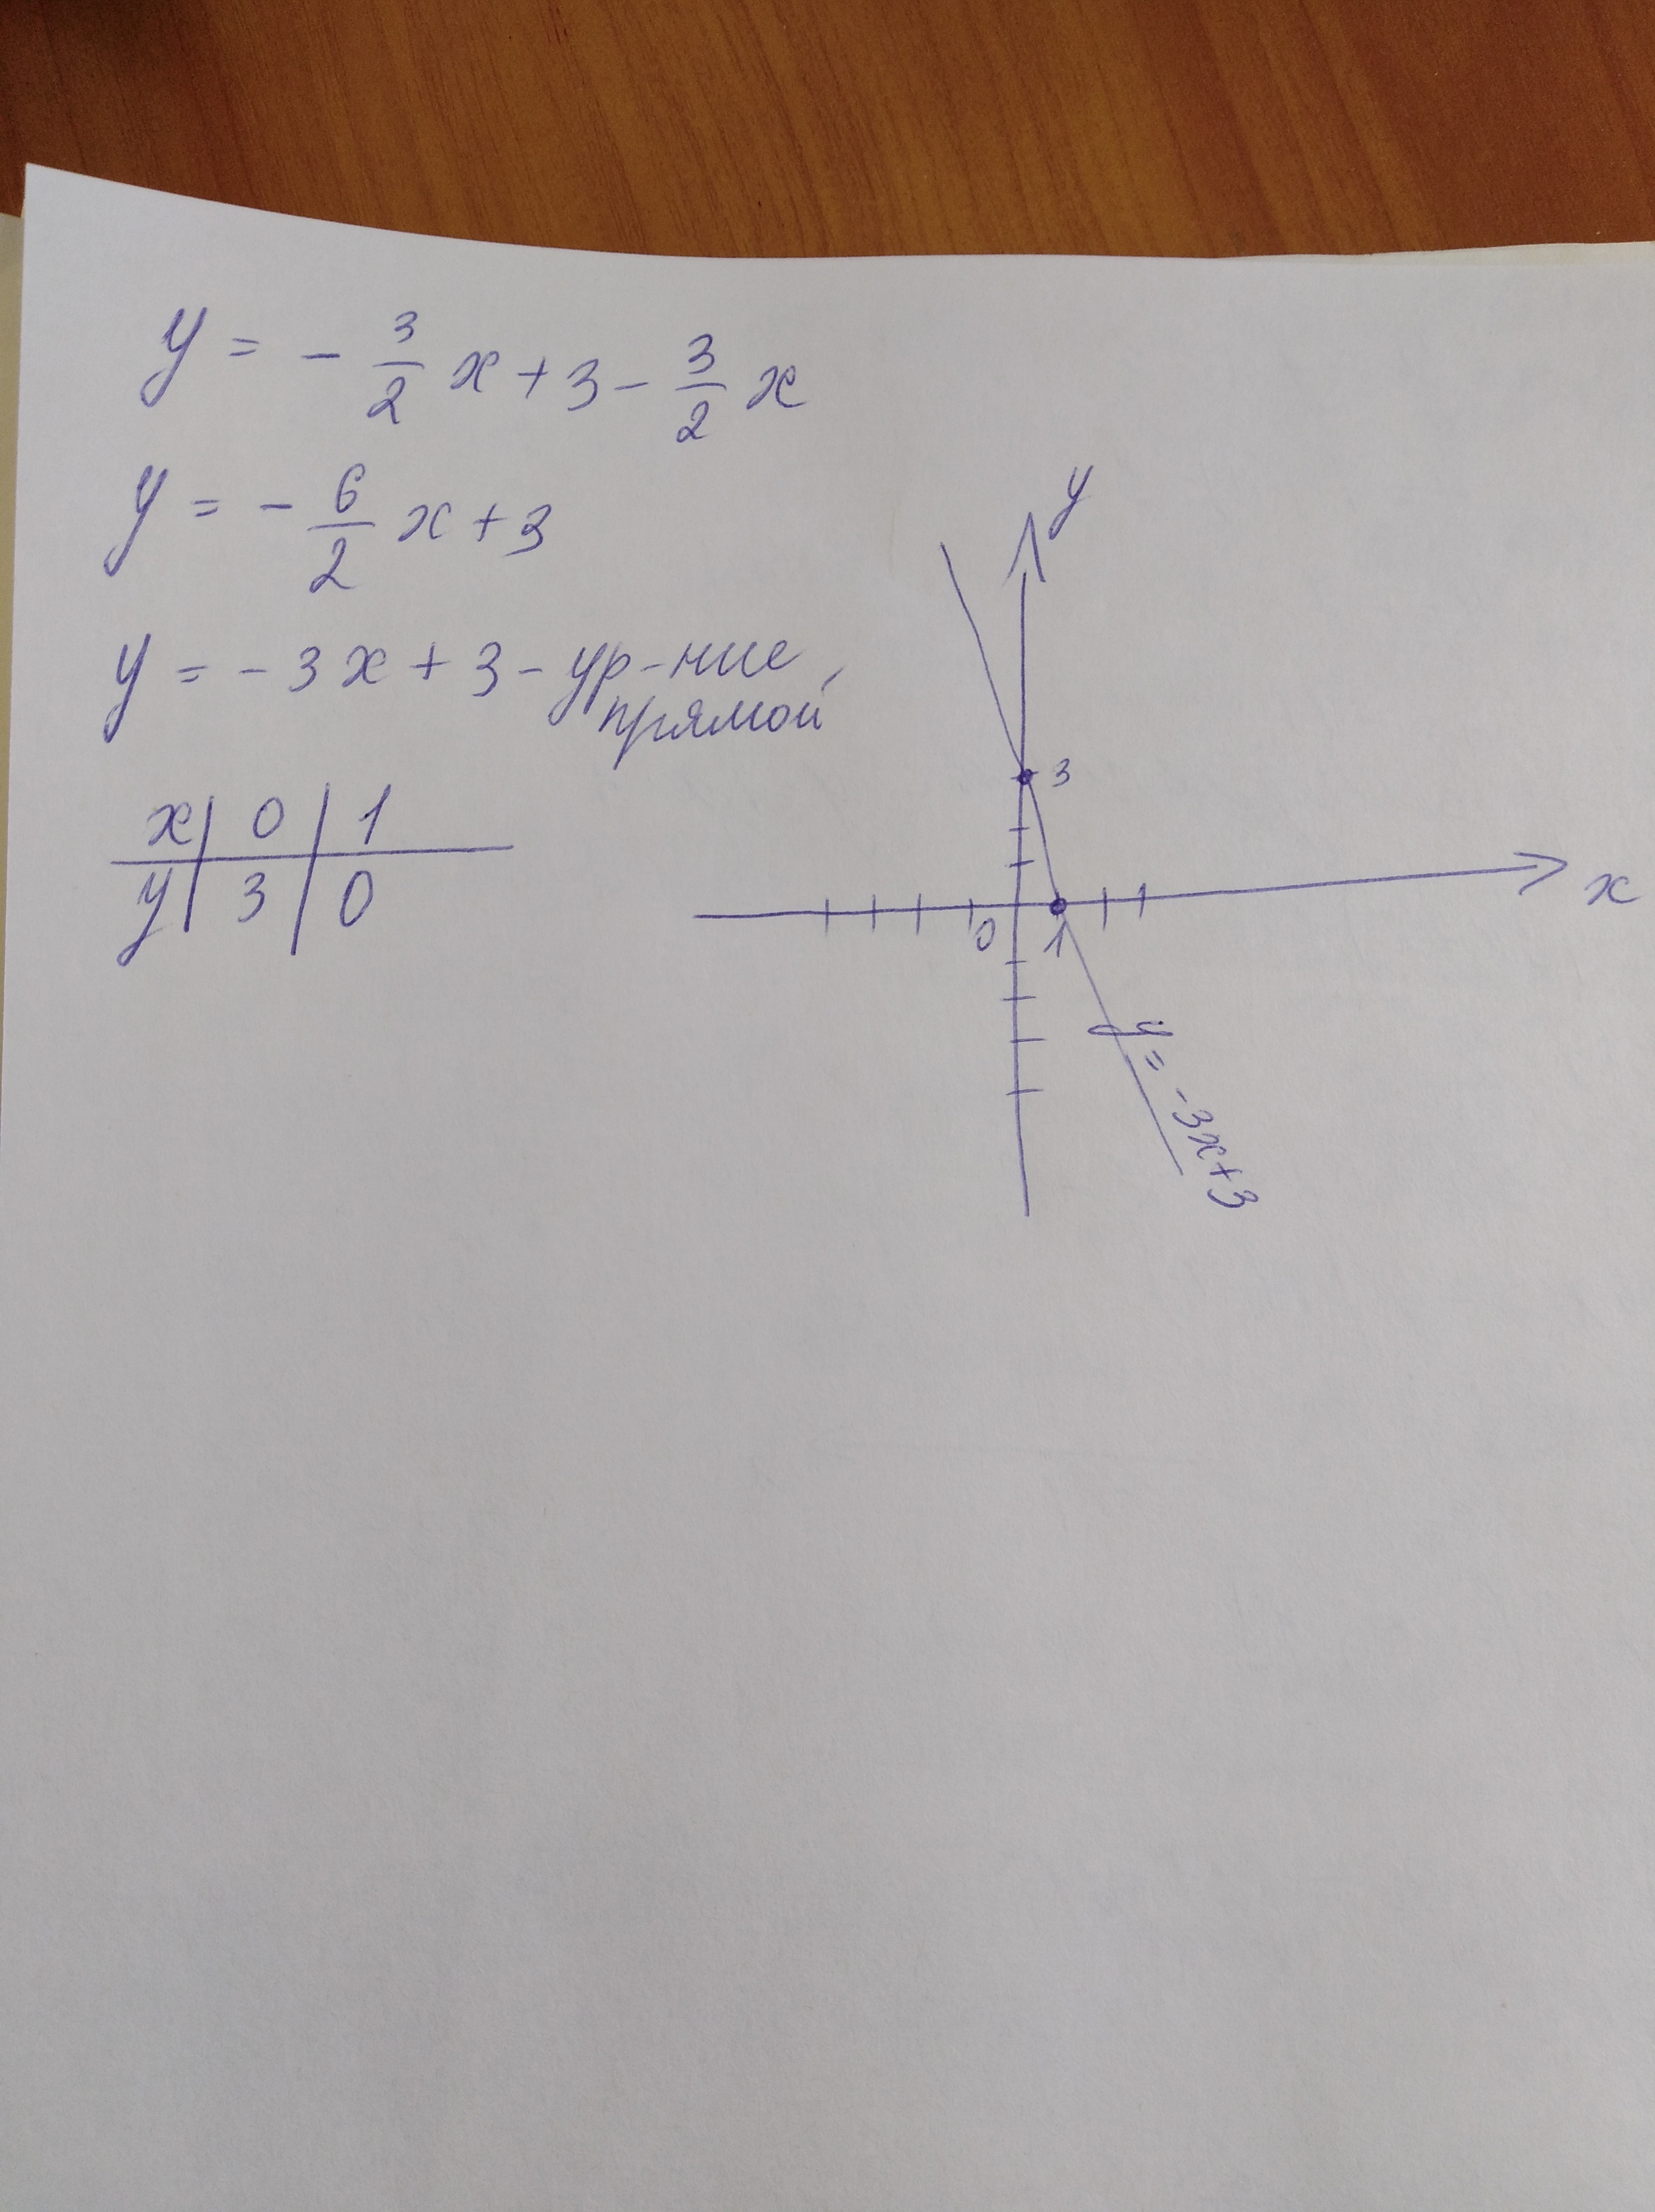 y = - 3/2 x + 3 - 3/2 x
y = - 6/2 x + 3
y = - 3x + 3 - ур-ние
прямой
x | 0 | 1
y | 3 | 0
y
3
x
0 1
y = -3x+3